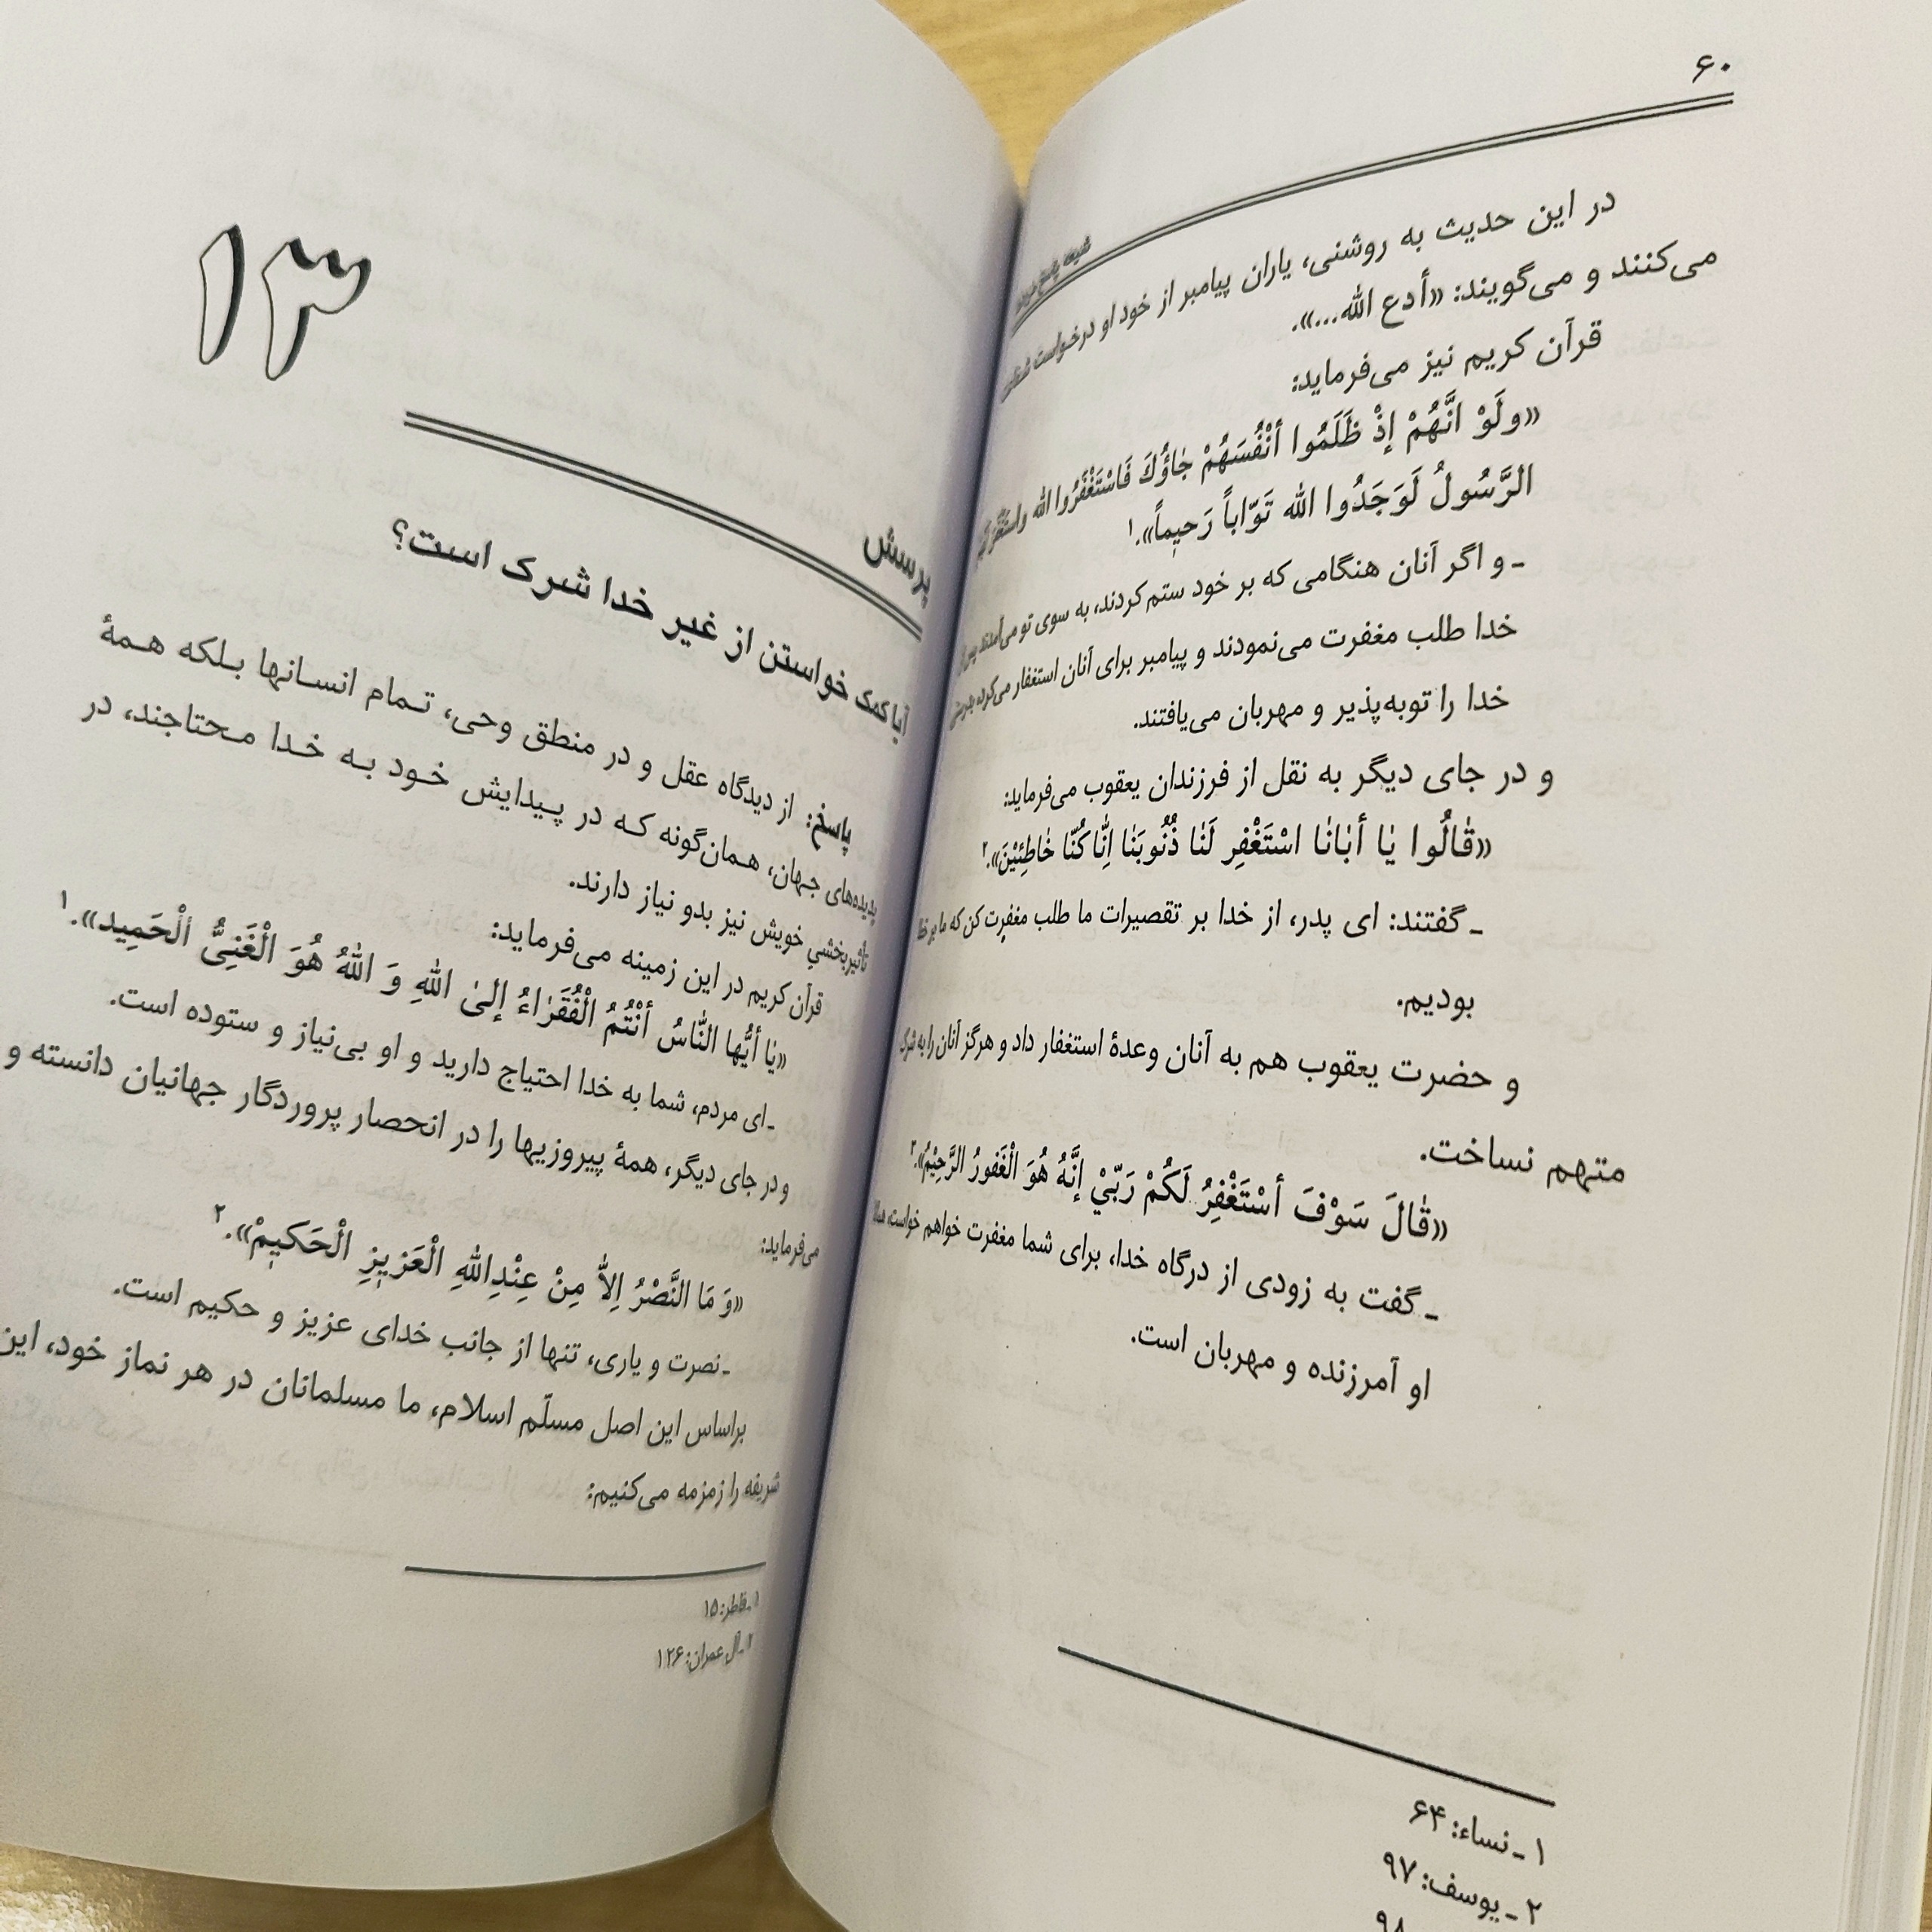 ۶۰
شیعه پاسخ می‌دهد
در این حدیث به روشنی، یاران پیامبر از خود او درخواست شفاعت
می‌کنند و می‌گویند: «أدع الله...».
قرآن کریم نیز می‌فرماید:
«ولَوْ انَّهُمْ إذْ ظَلَمُوا أنْفُسَهُمْ جٰاؤُكَ فَاسْتَغْفَرُوا الله واسْتَغْفَرَ لَهُمْ
الرَّسُولُ لَوَجَدُوا الله تَوّاباً رَحيماً».۱
ـ و اگر آنان هنگامی که بر خود ستم کردند، به سوی تو می‌آمدند پس از
خدا طلب مغفرت می‌نمودند و پیامبر برای آنان استغفار می‌کرد، بدرستی
خدا را توبه‌پذیر و مهربان می‌یافتند.
و در جای دیگر به نقل از فرزندان یعقوب می‌فرماید:
«قٰالُوا يٰا أبٰانٰا اسْتَغْفِر لَنٰا ذُنُوبَنٰا اِنّٰا كُنّٰا خٰاطِئِيْنَ».۲
ـ گفتند: ای پدر، از خدا بر تقصیرات ما طلب مغفرت کن که ما بر خطا
بودیم.
و حضرت یعقوب هم به آنان وعدهٔ استغفار داد و هرگز آنان را به شرک
متهم نساخت.
«قٰالَ سَوْفَ أسْتَغْفِرُ لَكُمْ رَبّيْ إنَّهُ هُوَ الْغَفورُ الرَّحيْمُ».۳
ـ گفت به زودی از درگاه خدا، برای شما مغفرت خواهم خواست، همانا
او آمرزنده و مهربان است.
۱ ـ نساء: ۶۴
۲ ـ یوسف: ۹۷
۹۸
۱۳
پرسش
آیا کمک خواستن از غیر خدا شرک است؟
پاسخ: از دیدگاه عقل و در منطق وحی، تمام انسانها بلکه همهٔ
پدیده‌های جهان، همان‌گونه که در پیدایش خود به خدا محتاجند، در
تأثیربخشی خویش نیز بدو نیاز دارند.
قرآن کریم در این زمینه می‌فرماید:
«يٰا أيُّها النّاسُ أنْتُمُ الْفُقَرٰاءُ إلىٰ اللهِ وَ اللهُ هُوَ الْغَنِيُّ الْحَمِيد».۱
ـ ای مردم، شما به خدا احتیاج دارید و او بی‌نیاز و ستوده است.
و در جای دیگر، همهٔ پیروزیها را در انحصار پروردگار جهانیان دانسته و
می‌فرماید:
«وَ مَا النَّصْرُ اِلاّٰ مِنْ عِنْدِاللهِ الْعَزيزِ الْحَكيمْ».۲
ـ نصرت و یاری، تنها از جانب خدای عزیز و حکیم است.
براساس این اصل مسلّم اسلام، ما مسلمانان در هر نماز خود، این
شریفه را زمزمه می‌کنیم:
۱ـ فاطر: ۱۵
۲ـ آل عمران: ۱۲۶